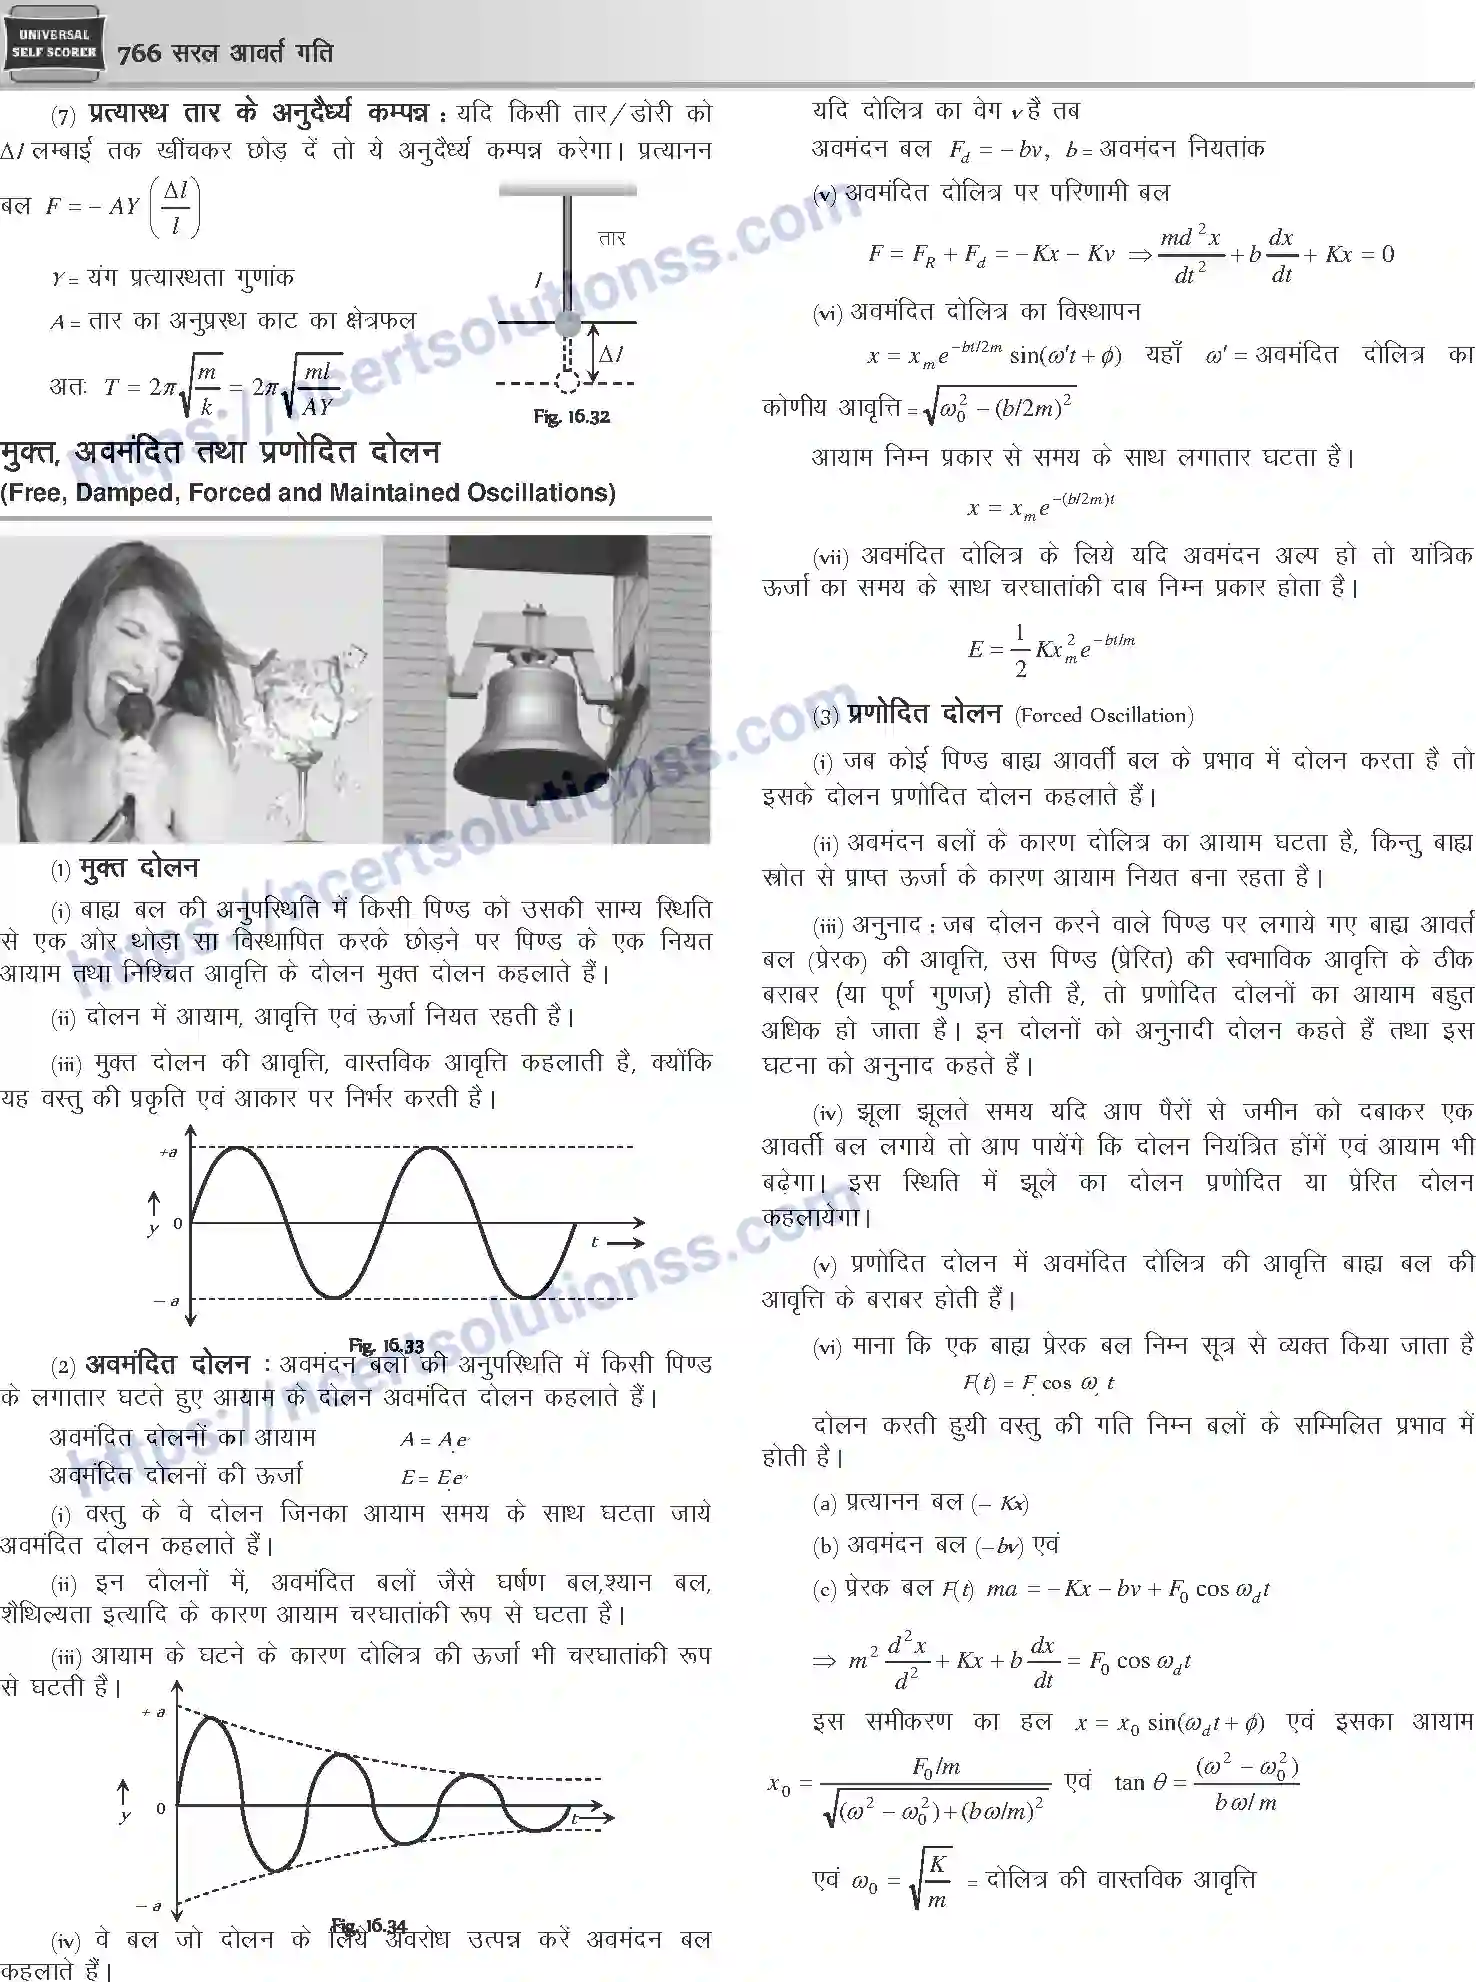 UNIVERSAL
SELF SCORER
766 सरल आवर्त गति
(7) प्रत्यास्थ तार के अनुदैर्ध्य कम्पन्न : यदि किसी तार/डोरी को
Δl लम्बाई तक खींचकर छोड़ दें तो ये अनुदैर्ध्य कम्पन्न करेगा। प्रत्यानन
बल F = − AY (Δl/l)
Y = यंग प्रत्यास्थता गुणांक
A = तार का अनुप्रस्थ काट का क्षेत्रफल
अतः T = 2π√(m/k) = 2π√(ml/AY)
तार
l
Δl
Fig. 16.32
मुक्त, अवमंदित तथा प्रणोदित दोलन
(Free, Damped, Forced and Maintained Oscillations)
(1) मुक्त दोलन
(i) बाह्य बल की अनुपस्थिति में किसी पिण्ड को उसकी साम्य स्थिति
से एक ओर थोड़ा सा विस्थापित करके छोड़ने पर पिण्ड के एक नियत
आयाम तथा निश्चित आवृत्ति के दोलन मुक्त दोलन कहलाते हैं।
(ii) दोलन में आयाम, आवृत्ति एवं ऊर्जा नियत रहती है।
(iii) मुक्त दोलन की आवृत्ति, वास्तविक आवृत्ति कहलाती है, क्योंकि
यह वस्तु की प्रकृति एवं आकार पर निर्भर करती है।
+a
y
0
t
− a
Fig. 16.33
(2) अवमंदित दोलन : अवमंदन बलों की अनुपस्थिति में किसी पिण्ड
के लगातार घटते हुए आयाम के दोलन अवमंदित दोलन कहलाते हैं।
अवमंदित दोलनों का आयाम A = A e
अवमंदित दोलनों की ऊर्जा E = E e
(i) वस्तु के वे दोलन जिनका आयाम समय के साथ घटता जाये
अवमंदित दोलन कहलाते हैं।
(ii) इन दोलनों में, अवमंदित बलों जैसे घर्षण बल,श्यान बल,
शैथिल्यता इत्यादि के कारण आयाम चरघातांकी रूप से घटता है।
(iii) आयाम के घटने के कारण दोलित्र की ऊर्जा भी चरघातांकी रूप
से घटती है।
+ a
y
0
t
− a
Fig. 16.34
(iv) वे बल जो दोलन के लिये अवरोध उत्पन्न करें अवमंदन बल
कहलाते हैं।
यदि दोलित्र का वेग v है तब
अवमंदन बल F_d = − bv, b = अवमंदन नियतांक
(v) अवमंदित दोलित्र पर परिणामी बल
F = F_R + F_d = −Kx − Kv ⇒ md²x/dt² + b dx/dt + Kx = 0
(vi) अवमंदित दोलित्र का विस्थापन
x = x_m e^(−bt/2m) sin(ω′t + φ) यहाँ ω′ = अवमंदित दोलित्र का
कोणीय आवृत्ति = √(ω₀² − (b/2m)²)
आयाम निम्न प्रकार से समय के साथ लगातार घटता है।
x = x_m e^(−(b/2m)t)
(vii) अवमंदित दोलित्र के लिये यदि अवमंदन अल्प हो तो यांत्रिक
ऊर्जा का समय के साथ चरघातांकी दाब निम्न प्रकार होता है।
E = 1/2 Kx_m² e^(−bt/m)
(3) प्रणोदित दोलन (Forced Oscillation)
(i) जब कोई पिण्ड बाह्य आवर्ती बल के प्रभाव में दोलन करता है तो
इसके दोलन प्रणोदित दोलन कहलाते हैं।
(ii) अवमंदन बलों के कारण दोलित्र का आयाम घटता है, किन्तु बाह्य
स्रोत से प्राप्त ऊर्जा के कारण आयाम नियत बना रहता है।
(iii) अनुनाद : जब दोलन करने वाले पिण्ड पर लगाये गए बाह्य आवर्त
बल (प्रेरक) की आवृत्ति, उस पिण्ड (प्रेरित) की स्वभाविक आवृत्ति के ठीक
बराबर (या पूर्ण गुणज) होती है, तो प्रणोदित दोलनों का आयाम बहुत
अधिक हो जाता है। इन दोलनों को अनुनादी दोलन कहते हैं तथा इस
घटना को अनुनाद कहते हैं।
(iv) झूला झूलते समय यदि आप पैरों से जमीन को दबाकर एक
आवर्ती बल लगाये तो आप पायेंगे कि दोलन नियंत्रित होंगें एवं आयाम भी
बढ़ेगा। इस स्थिति में झूले का दोलन प्रणोदित या प्रेरित दोलन
कहलायेगा।
(v) प्रणोदित दोलन में अवमंदित दोलित्र की आवृत्ति बाह्य बल की
आवृत्ति के बराबर होती हैं।
(vi) माना कि एक बाह्य प्रेरक बल निम्न सूत्र से व्यक्त किया जाता है
F(t) = F cos ω t
दोलन करती हुयी वस्तु की गति निम्न बलों के सम्मिलित प्रभाव में
होती है।
(a) प्रत्यानन बल (− Kx)
(b) अवमंदन बल (−bv) एवं
(c) प्रेरक बल F(t) ma = −Kx − bv + F₀ cos ω_d t
⇒ m² d²x/d² + Kx + b dx/dt = F₀ cos ω_d t
इस समीकरण का हल x = x₀ sin(ω_d t + φ) एवं इसका आयाम
x₀ = (F₀/m)/√((ω² − ω₀²)+(bω/m)²) एवं tan θ = (ω² − ω₀²)/(bω/m)
एवं ω₀ = √(K/m) = दोलित्र की वास्तविक आवृत्ति
https://ncertsolutionss.com
https://ncertsolutionss.com
https://ncertsolutionss.com